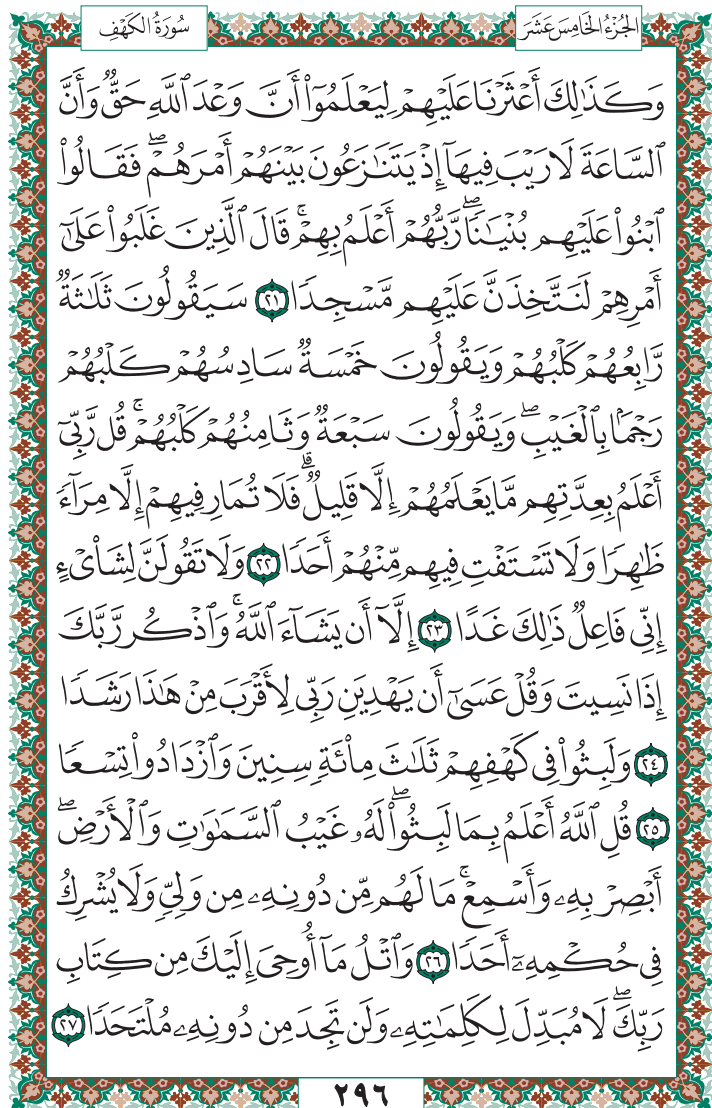 سُورَةُ الكَهْفِ
الجُزْءُ الخَامِسَ عَشَرَ
وَكَذَٰلِكَ أَعْثَرْنَا عَلَيْهِمْ لِيَعْلَمُوٓا۟ أَنَّ وَعْدَ ٱللَّهِ حَقٌّ وَأَنَّ
ٱلسَّاعَةَ لَا رَيْبَ فِيهَآ إِذْ يَتَنَٰزَعُونَ بَيْنَهُمْ أَمْرَهُمْ ۖ فَقَالُوا۟
ٱبْنُوا۟ عَلَيْهِم بُنْيَٰنًا ۖ رَّبُّهُمْ أَعْلَمُ بِهِمْ ۚ قَالَ ٱلَّذِينَ غَلَبُوا۟ عَلَىٰٓ
أَمْرِهِمْ لَنَتَّخِذَنَّ عَلَيْهِم مَّسْجِدًا ٢١ سَيَقُولُونَ ثَلَٰثَةٌ
رَّابِعُهُمْ كَلْبُهُمْ وَيَقُولُونَ خَمْسَةٌ سَادِسُهُمْ كَلْبُهُمْ
رَجْمًۢا بِٱلْغَيْبِ ۖ وَيَقُولُونَ سَبْعَةٌ وَثَامِنُهُمْ كَلْبُهُمْ ۚ قُل رَّبِّىٓ
أَعْلَمُ بِعِدَّتِهِم مَّا يَعْلَمُهُمْ إِلَّا قَلِيلٌ ۗ فَلَا تُمَارِ فِيهِمْ إِلَّا مِرَآءً
ظَٰهِرًا وَلَا تَسْتَفْتِ فِيهِم مِّنْهُمْ أَحَدًا ٢٢ وَلَا تَقُولَنَّ لِشَا۟ىْءٍ
إِنِّى فَاعِلٌ ذَٰلِكَ غَدًا ٢٣ إِلَّآ أَن يَشَآءَ ٱللَّهُ ۚ وَٱذْكُر رَّبَّكَ
إِذَا نَسِيتَ وَقُلْ عَسَىٰٓ أَن يَهْدِيَنِ رَبِّى لِأَقْرَبَ مِنْ هَٰذَا رَشَدًا
٢٤ وَلَبِثُوا۟ فِى كَهْفِهِمْ ثَلَٰثَ مِا۟ئَةٍ سِنِينَ وَٱزْدَادُوا۟ تِسْعًا
٢٥ قُلِ ٱللَّهُ أَعْلَمُ بِمَا لَبِثُوا۟ ۖ لَهُۥ غَيْبُ ٱلسَّمَٰوَٰتِ وَٱلْأَرْضِ ۖ
أَبْصِرْ بِهِۦ وَأَسْمِعْ ۚ مَا لَهُم مِّن دُونِهِۦ مِن وَلِىٍّ وَلَا يُشْرِكُ
فِى حُكْمِهِۦٓ أَحَدًا ٢٦ وَٱتْلُ مَآ أُوحِىَ إِلَيْكَ مِن كِتَابِ
رَبِّكَ ۖ لَا مُبَدِّلَ لِكَلِمَٰتِهِۦ وَلَن تَجِدَ مِن دُونِهِۦ مُلْتَحَدًا ٢٧
٢٩٦